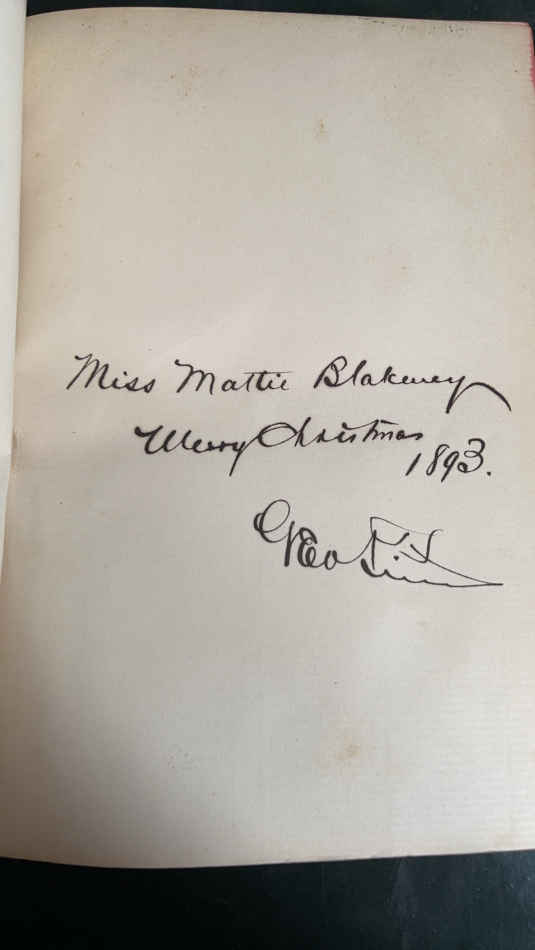 Miss Mattie Blakeney
Merry Christmas
1893.
Geo